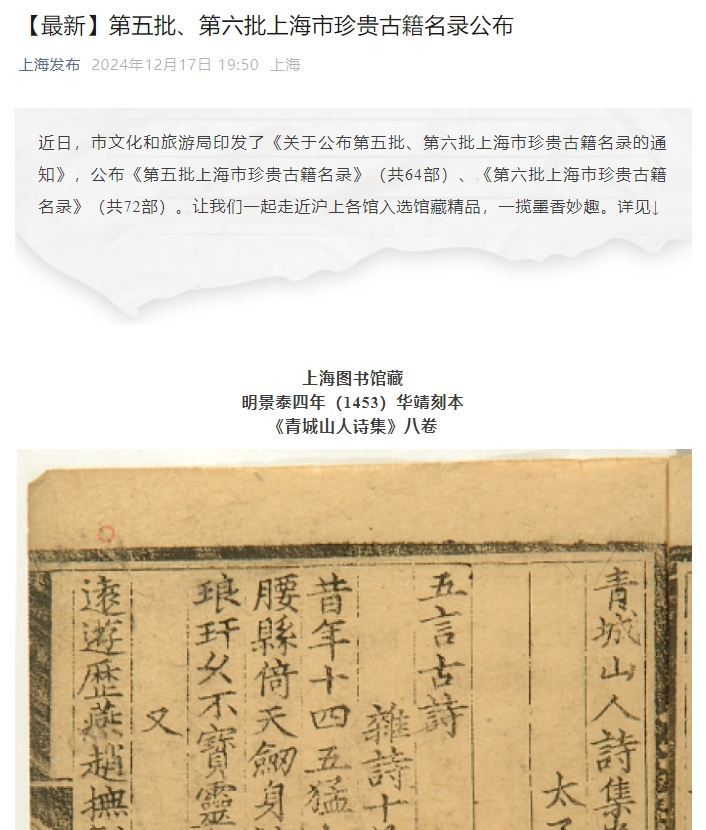 【最新】第五批、第六批上海市珍贵古籍名录公布
上海发布 2024年12月17日 19:50 上海
近日，市文化和旅游局印发了《关于公布第五批、第六批上海市珍贵古籍名录的通
知》，公布《第五批上海市珍贵古籍名录》（共64部）、《第六批上海市珍贵古籍
名录》（共72部）。让我们一起走近沪上各馆入选馆藏精品，一揽墨香妙趣。详见↓
上海图书馆藏
明景泰四年（1453）华靖刻本
《青城山人诗集》八卷
青城山人詩集
太
五言古詩
雜詩十
昔年十四五猛
腰縣倚天劒身
琅玕么不寶靈
又
遠遊歷燕趙撫